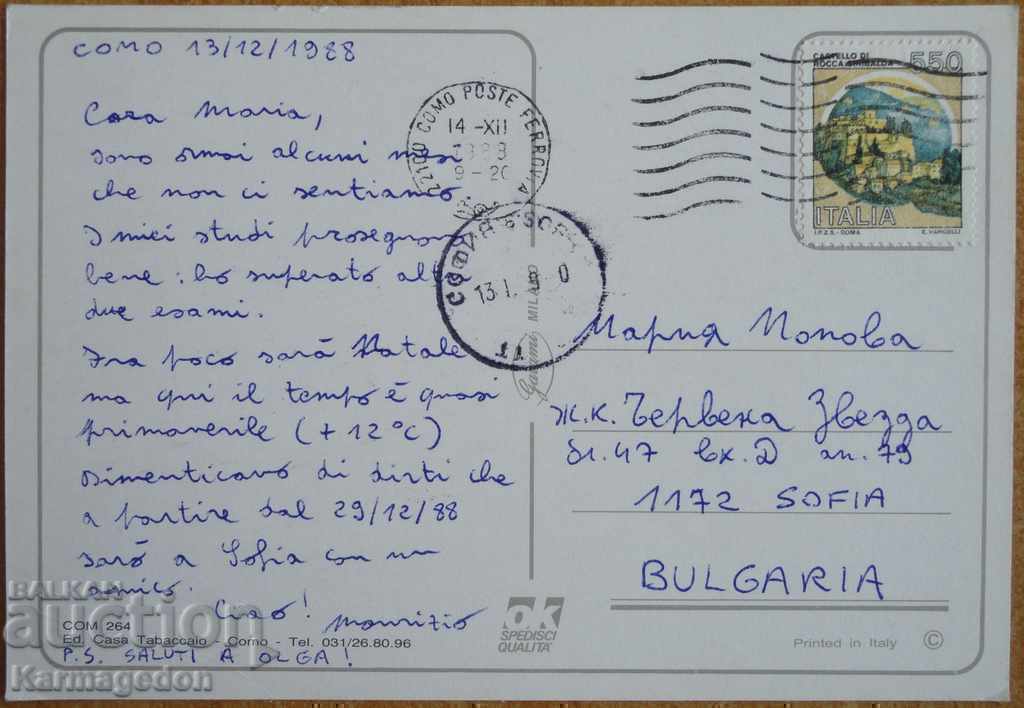 COMO 13/12/1988
Cara Maria,
sono ormai alcuni mesi
che non ci sentiamo
I miei studi proseguono
bene: ho superato altri
due esami.
Fra poco sarà Natale
ma qui il tempo è quasi
primaverile (+12°C)
Dimenticavo di dirti che
a partire dal 29/12/88
sarò a Sofia con un
amico.
Ciao! Maurizio
COM 264
Ed. Casa Tabaccaio - Como - Tel. 031/26.80.96
P.S. SALUTI A OLGA!
22100 COMO POSTE FERROVIA
14-XII
1988
13.1.
MILANO
CASTELLO DI
ROCCA SINIBALDA
550
ITALIA
I.P.Z.S. - ROMA
Мария Попова
ж.к. Червена Звезда
бл. 47 вх. Д ап. 79
1172 SOFIA
BULGARIA
ok
SPEDISCI
QUALITA'
Printed in Italy ©
BALKAN
auction
Karmagedon